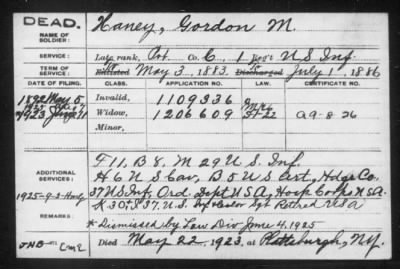 DEAD.
NAME OF SOLDIER:
Haney, Gordon M.
SERVICE:
Late rank, Pvt. Co. C, 1 Reg't U S Inf.
TERM OF SERVICE:
Enlisted May 3, 1883. Discharged July 1, 1886
DATE OF FILING.
CLASS.
APPLICATION NO.
CERTIFICATE NO.
1892 May 5
Invalid,
1109336
1923
Widow,
1206609
A 9-8-26
Minor,
ADDITIONAL SERVICES:
F 11, B 8, M 29 U S. Inf.
H 6 U S Cav, B 5 U S Art, Hdqs Co.
37 US Inf, Ord. Dept USA, Hosp Corps USA.
1925-9-3
K 30 + S 37, U.S. Inf + Color Sgt Retired USA
* Dismissed by Law Div June 4, 1925
JHB CME
Died May 22, 1923, at Plattsburgh, NY.